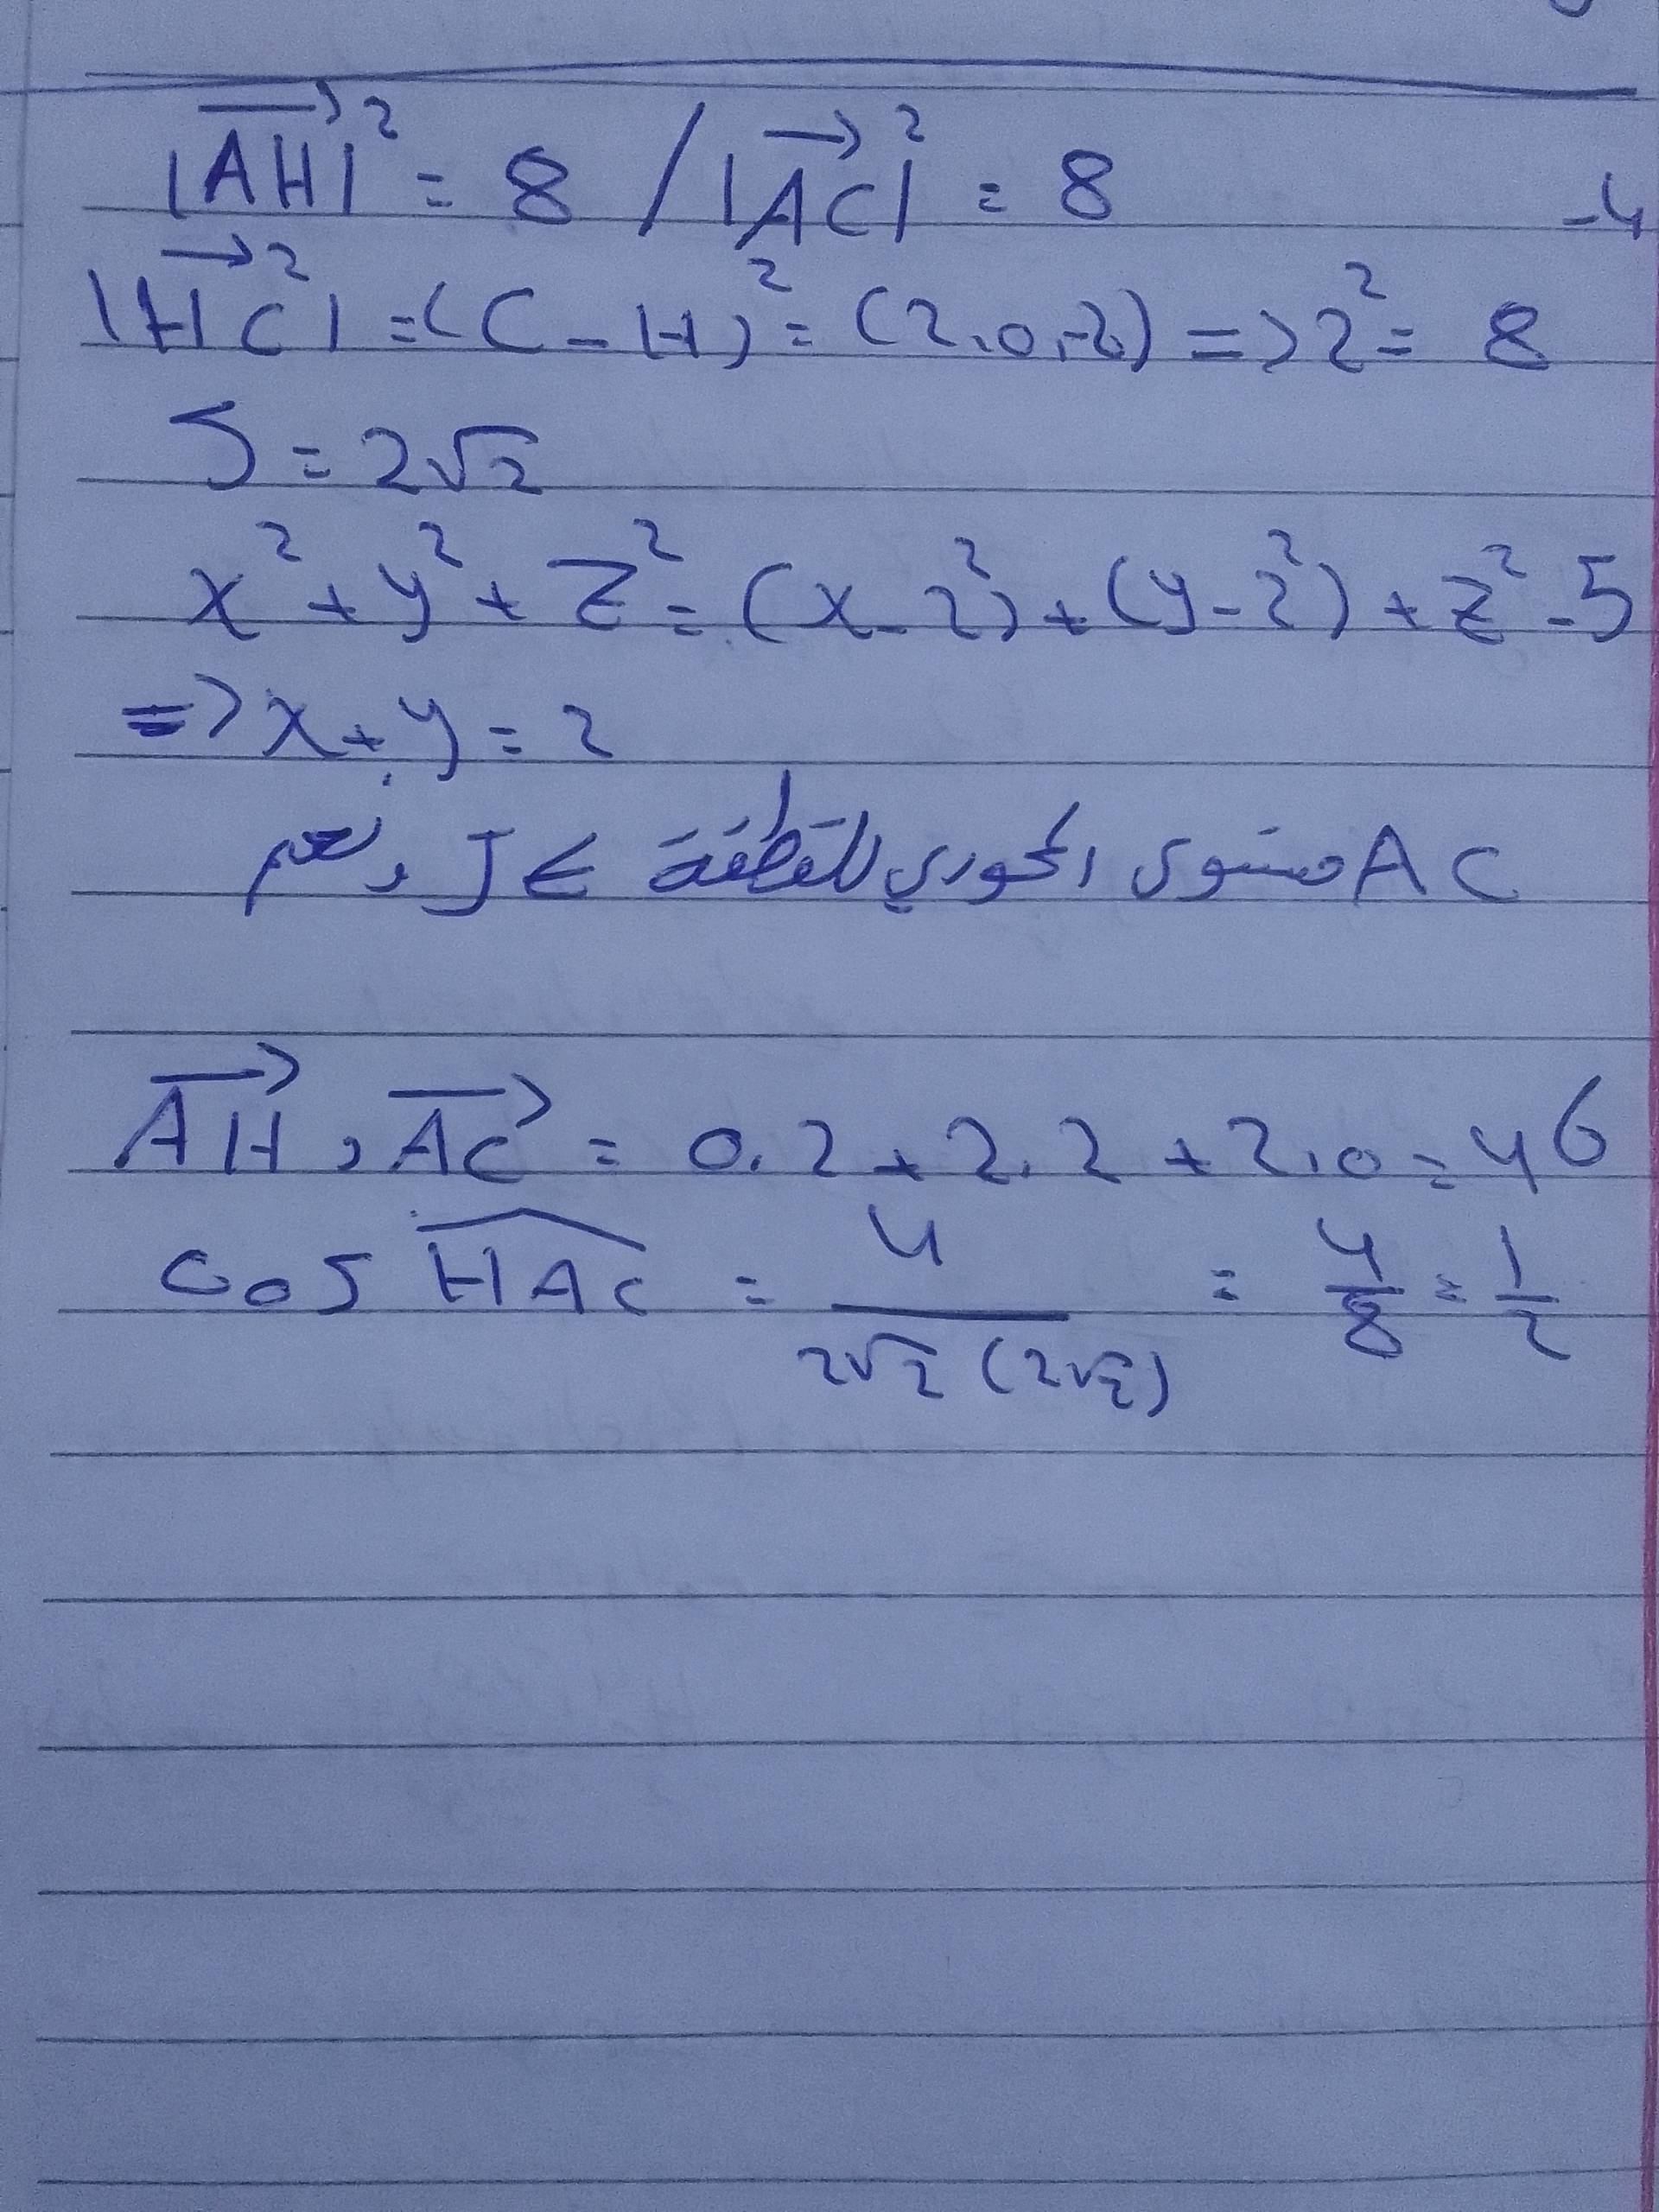 4- |AH|² = 8 / |AC|² = 8
|HC|² = (C - H)² = (2,0,-2) => 2² = 8
S = 2√2
5- x² + y² + z² = (x-2²) + (y-2²) + z²
=> x + y = 2
نعم و J ∈ مستوى المحوري للقطعة AC
6 AH, AC = 0.2 + 2.2 + 2.0 = 4
cos HAC = 4 / 2√2 (2√2) = 4/8 = 1/2